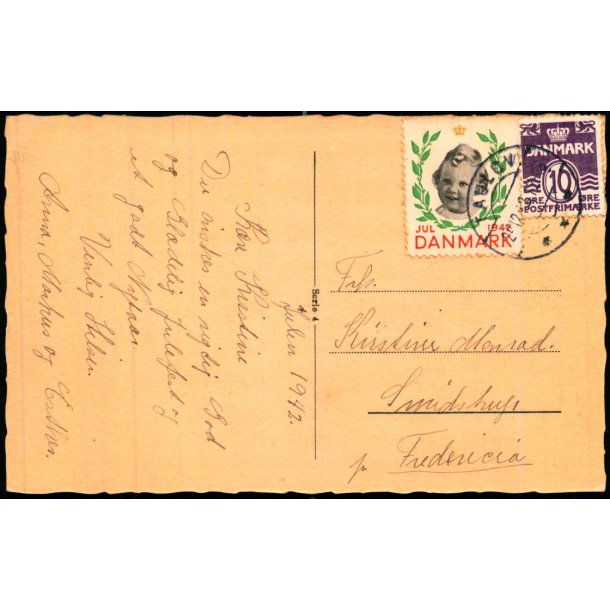 Julen 1942.
Kære Kristine
Du ønskes en rigtig God
og Glædelig Julefest og
et godt Nytaar.
Venlig Hilsen
Anna, Markus og
Serie 4
JUL 1942
DANMARK
DANMARK
10
ØRE ØRE
POSTFRIMÆRKE
TAULOV
Frk.
Kristine Monrad.
Smidstrup
pr Fredericia